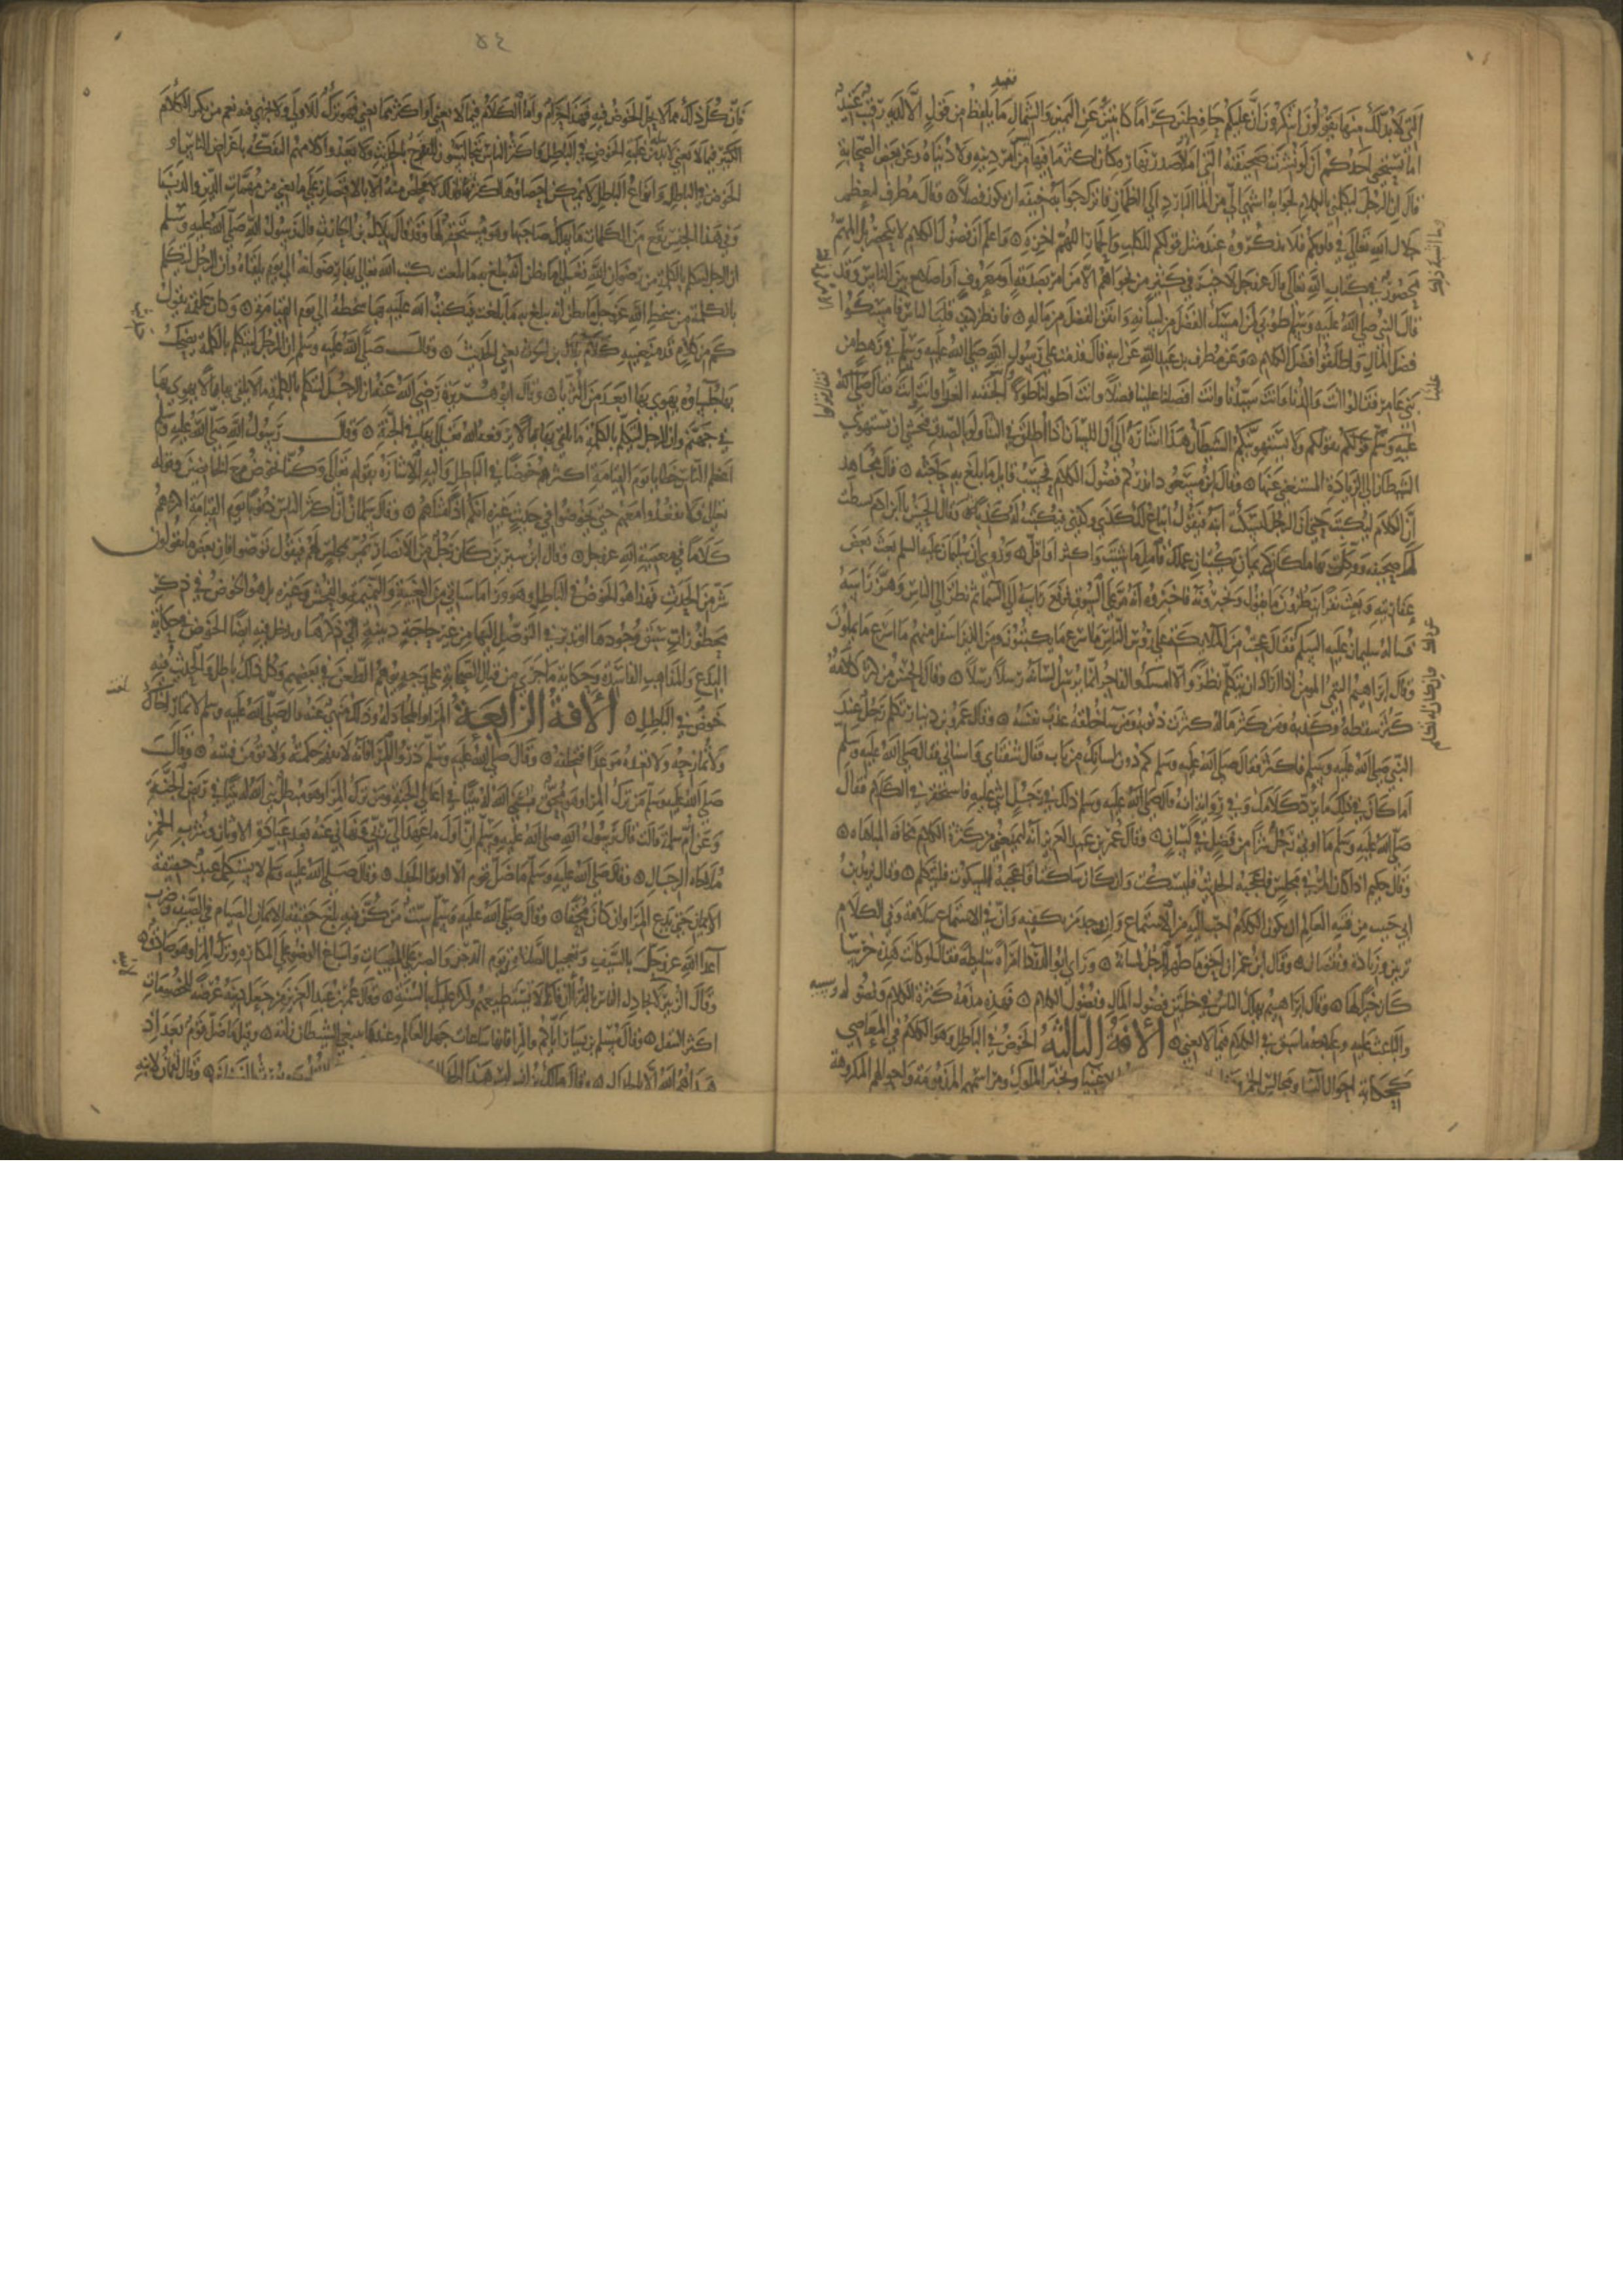 التي لا بد لك منها بقولون اتنكرون ان عليكم حافظين كراما كاتبين عن اليمين والشمال ما يلفظ من قول الا لديه رقيب عتيد
اما يستحي احدكم ان لو نشرت صحيفته التي املا صدر نهاره كان اكثر ما فيها ليس من امر دينه ولا دنياه وعن بعض الصحابة
قال ان الرجل ليكلمني بالكلام لجوابه اشهى الي من الماء البارد الى الظمان فاترك جوابه خيفة ان يكون فضلا وقال مطرف ليعظم
جلال الله تعالى في قلوبكم فلا تذكروه عند مثل قول احدكم للكلب والحمار اللهم اخزه واعلم ان فضول الكلام لا ينحصر بل المهم
محصور في كتاب الله تعالى قال عز وجل لا خير في كثير من نجواهم الا من امر بصدقة او معروف او اصلاح بين الناس وقد
قال النبي صلى الله عليه وسلم طوبى لمن امسك الفضل من لسانه وانفق الفضل من ماله فانظر كيف قلب الناس فامسكوا
فضل المال واطلقوا فضل الكلام وعن مطرف بن عبد الله عن ابيه قال قدمت على رسول الله صلى الله عليه وسلم في رهط من
بني عامر فقالوا انت والدنا وانت سيدنا وانت افضلنا علينا فضلا وانت اطولنا علينا طولا انت الجفنة الغراء وانت انت فقال صلى الله
عليه وسلم قولوا قولكم ولا يستهوينكم الشيطان هذا اشارة الى ان اللسان اذا اطلق في الثناء ولو بالصدق فيخشى ان يستهويه
الشيطان الى الزيادة المستغنى عنها وقال ابن مسعود انذركم فضول الكلام بحسب قائل ما بلغ به حاجته قال مجاهد
ان الكلام ليكتب حتى ان الرجل ليسكت ابنه فيقول ابتاع لك كذي وكذي فيكتب له كذبا وقال الحسن يا ابن ادم بسطت
لك صحيفه ووكل بها ملكان كريمان يكتبان عملك فاعمل ما شيت واكثر او اقل وروي ان سليمان عليه السلم بعث بعض
عفاريته وبعث نفرا ينظرون ما يقول ويخبرونه فاخبروه انه مر على السوق فرفع راسه الى السماء ثم نظر الى الناس وهز راسه
فساله سليمان عليه السلم فقال عجبت من الملايكة على رؤس الناس ما اسرع ما يكتبون ومن الذين اسفل منهم ما اسرع ما يملون
وقال ابراهيم التيمي المومن اذا اراد ان يتكلم نظر والا امسك والفاجر انما يرسل لسانه رسلا رسلا وقال الحسن من كثر كلامه
كثر سقطه وكذبه ومن كثر ماله كثرت ذنوبه ومن ساء خلقه عذب نفسه وقال عمرو بن دينار تكلم رجل عند
النبي صلى الله عليه وسلم فاكثر فقال صلى الله عليه وسلم كم دون لسانك من باب فقال شفتاي واسناني فقال صلى الله عليه وسلم
اما كان في ذلك ما يرد كلامك وفي رواية انه قال صلى الله عليه وسلم ذلك في رجل اثنى عليه فاستحفز في الكلام فقال
صلى الله عليه وسلم ما اوتي رجل شرا من فضل في لسان وقال عمر بن عبد العزيز انه ليمنعني من كثرة الكلام مخافة المباهاة
وقال حكيم اذا كان المرء في مجلس فاعجبه الحديث فليسكت وان كان ساكتا فاعجبه السكوت فليتكلم وقال يزيد بن
ابي حبيب من فتنة العالم ان يكون الكلام احب اليه من الاستماع وان وجد من يكفيه وان في الاستماع سلامة وفي الكلام
تزيين وزيادة ونقصان وقال ابن عمر ان احق ما طهر الرجل لسانه وراى ابو الدرداء امراة سليطة فقال لو كانت هذه خرسا
كان خيرا لها وقال ابراهيم يهلك الناس في خصلتين فضول المال وفضول الكلام فهذه مذمة كثرة الكلام وفضوله وسببه
والباعث عليه وعلاجه ما سبق في الكلام فيما لا يعني الافة الثالثة الخوض في الباطل وهو الكلام في المعاصي
كحكاية احوال النسا ومجالس الخمر وتجبر الملوك ومراسمهم المذمومة واحوالهم المكروهة
٥٤
فان كل ذلك مما لا يحل الخوض فيه فهذا حرام واما الكلام فيما لا يعني او اكثر مما يعني فهو ترك للاولى ولا تحريم فيه نعم من يكثر الكلام
الكثير فيما لا يعني لا يؤمن عليه الخوض في الباطل واكثر الناس يتجالسون للتفرج بالحديث ولا يعدوا كلامهم التفكه باعراض الناس او
الخوض في الباطل وانواع الباطل لا يمكن احصاؤها لكثرتها فلذلك لا مخلص منه الا بالاقتصار على ما يعني من مهمات الدين والدنيا
وفي هذا الجنس تقع من الكلمات ما يهلك صاحبها وهو مستحقر لها وقد قال بلال بن الحارث قال رسول الله صلى الله عليه وسلم
ان الرجل ليتكلم بالكلمة من رضوان الله تعالى ما يظن انها تبلغ به ما بلغت يكتب الله تعالى بها رضوانه الى يوم يلقاه وان الرجل ليتكلم
بالكلمة من سخط الله عز وجل ما يظن انه يبلغ به ما بلغت فيكتب الله عليه بها سخطه الى يوم القيامة وكان علقمة يقول
كم من كلام قد منعنيه كلام بلال بن الحرث يعني الحديث وقال صلى الله عليه وسلم ان الرجل ليتكلم بالكلمة يضحك
بها جلساوه يهوي بها ابعد من الثريا وقال ابو هريرة رضي الله عنه ان الرجل ليتكلم بالكلمة ما يلقي بها بالا يهوي بها
في جهنم وان الرجل ليتكلم بالكلمة ما يلقي بها بالا يرفعه الله تعالى بها في الجنة وقال رسول الله صلى الله عليه وسلم
اعظم الناس خطايا يوم القيامة اكثرهم خوضا في الباطل واليه الاشارة بقوله تعالى وكنا نخوض مع الخائضين وبقوله
تعالى فلا تقعدوا معهم حتى يخوضوا في حديث غيره انكم اذا مثلهم وقال سلمان ان اكثر الناس ذنوبا يوم القيامة اكثرهم
كلاما في معصية الله عز وجل وقال ابن سيرين كان رجل من الانصار يمر بمجلس لهم فيقول توضوا فان بعض ما تقولون
شر من الحدث فهذا هو الخوض في الباطل وهو وراء ما سياتي من الغيبة والنميمة والفحش وغيره بل هو الخوض في ذكر
محظورات سبق وجودها او تدبر في التوصل اليها من غير حاجة دينية الى ذكرها ويدخل فيه ايضا الخوض في حكاية
البدع والمذاهب الفاسدة وحكاية ما جرى من قتال الصحابة على وجه يوهم الطعن في بعضهم وكل ذلك باطل والحديث فيه
خوض في الباطل الافة الرابعة المراء والمجادلة وذلك منهي عنه قال صلى الله عليه وسلم لا تمار اخاك
ولا تمازحه ولا تعده موعدا فتخلفه وقال صلى الله عليه وسلم ذروا المراء فانه لا تفهم حكمته ولا تؤمن فتنته وقال
صلى الله عليه وسلم من ترك المراء وهو محق بنى الله له بيتا في اعلى الجنة ومن ترك المراء وهو مبطل بنى الله له بيتا في ربض الجنة
وعن ام سلمة قالت قال رسول الله صلى الله عليه وسلم ان اول ما عهد الي ربي ونهاني عنه بعد عبادة الاوثان وشرب الخمر
ملاحاة الرجال وقال صلى الله عليه وسلم ما ضل قوم الا اوتوا الجدل وقال صلى الله عليه وسلم لا يستكمل عبد حقيقة
الايمان حتى يدع المراء وان كان محقا وقال صلى الله عليه وسلم ست من كن فيه بلغ حقيقة الايمان الصيام في الصيف وضرب
اعداء الله عز وجل بالسيف وتعجيل الصلاة في يوم الدجن والصبر على المصيبات واسباغ الوضوء على المكاره وترك المراء وهو صادق
وقال الزبير لابنه لا تجادل الناس بالقران فانك لا تستطيعهم ولكن عليك بالسنة وقال عمر بن عبد العزيز من جعل دينه عرضة للخصومات
اكثر التنقل وقال مسلم بن يسار اياكم والمراء فانها ساعة جهل العالم وعندها يبتغي الشيطان زلته وقيل ما ضل قوم بعد اذ
هداهم الله الا بالجدل وقال مالك بن انس ليس هذا الجدال وقال لقمان لابنه